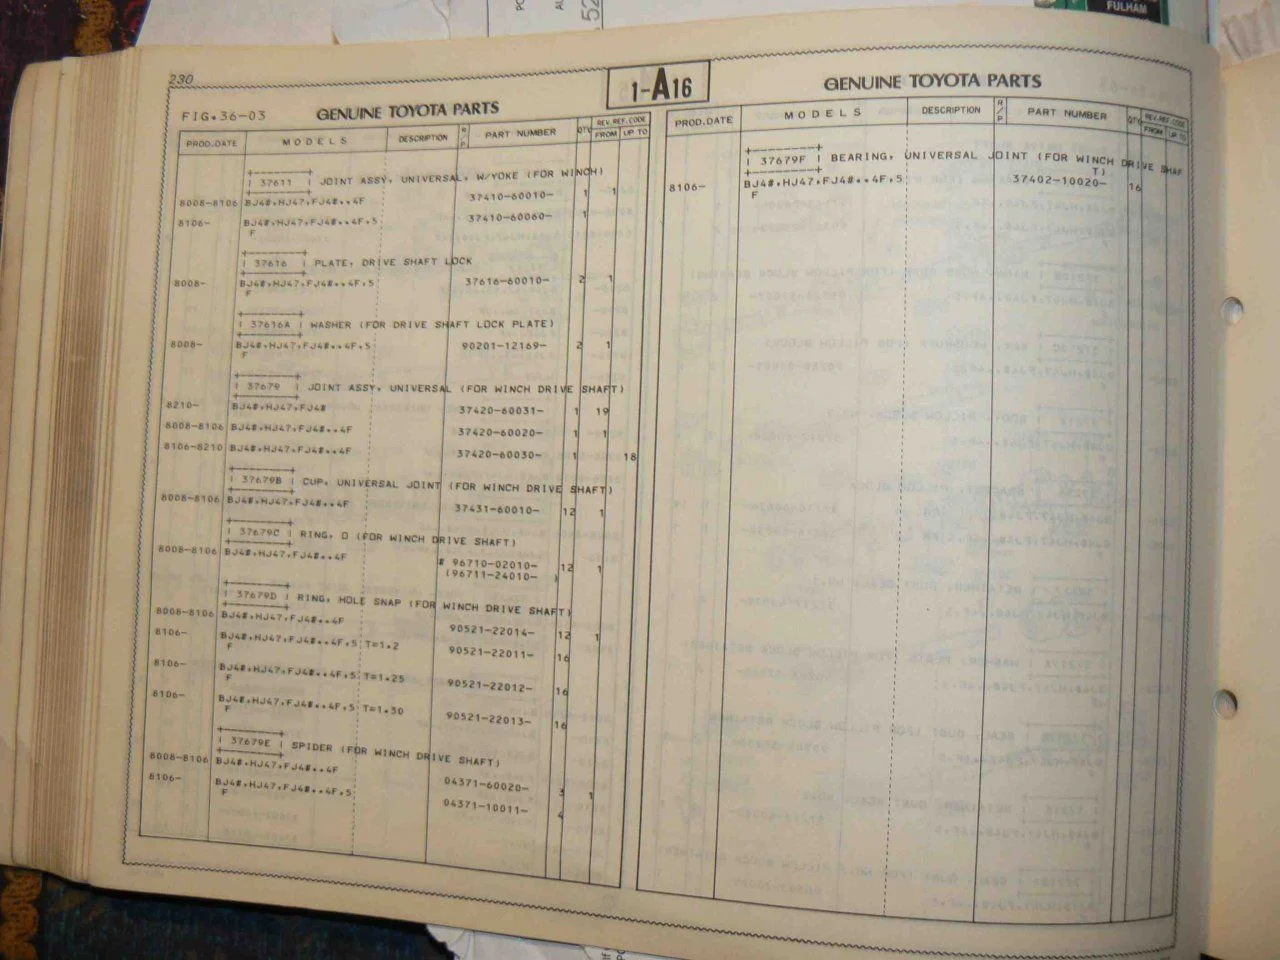 FULHAM
52
230
1-A16
FIG.36-03 GENUINE TOYOTA PARTS
PROD.DATE MODELS DESCRIPTION R/P PART NUMBER QTY REV.REF.CODE FROM UP TO
37611 JOINT ASSY, UNIVERSAL, W/YOKE (FOR WINCH)
8008-8106 BJ4#,HJ47,FJ4#..4F 37410-60010- 1 1
8106- BJ4#,HJ47,FJ4#..4F,5 37410-60060- 1
F
37616 PLATE, DRIVE SHAFT LOCK
8008- BJ4#,HJ47,FJ4#..4F,5 37616-60010- 2 1
F
37616A WASHER (FOR DRIVE SHAFT LOCK PLATE)
8008- BJ4#,HJ47,FJ4#..4F,5 90201-12169- 2 1
F
37679 JOINT ASSY, UNIVERSAL (FOR WINCH DRIVE SHAFT)
8210- BJ4#,HJ47,FJ4# 37420-60031- 1 19
8008-8106 BJ4#,HJ47,FJ4#..4F 37420-60020- 1 1
8106-8210 BJ4#,HJ47,FJ4#..4F 37420-60030- 1 18
37679B CUP, UNIVERSAL JOINT (FOR WINCH DRIVE SHAFT)
8008-8106 BJ4#,HJ47,FJ4#..4F 37431-60010- 12 1
37679C RING, O (FOR WINCH DRIVE SHAFT)
8008-8106 BJ4#,HJ47,FJ4#..4F # 96710-02010- 12 1
(96711-24010- )
37679D RING, HOLE SNAP (FOR WINCH DRIVE SHAFT)
8008-8106 BJ4#,HJ47,FJ4#..4F 90521-22014- 12 1
8106- BJ4#,HJ47,FJ4#..4F,5 T=1.2 90521-22011- 16
F
8106- BJ4#,HJ47,FJ4#..4F,5 T=1.25 90521-22012- 16
F
8106- BJ4#,HJ47,FJ4#..4F,5 T=1.30 90521-22013- 16
F
37679E SPIDER (FOR WINCH DRIVE SHAFT)
8008-8106 BJ4#,HJ47,FJ4#..4F 04371-60020- 3 1
8106- BJ4#,HJ47,FJ4#..4F,5 04371-10011- 4
F
GENUINE TOYOTA PARTS
PROD.DATE MODELS DESCRIPTION R/P PART NUMBER QTY REV.REF.CODE FROM UP TO
37679F BEARING, UNIVERSAL JOINT (FOR WINCH DRIVE SHAF
T)
8106- BJ4#,HJ47,FJ4#..4F,5 37402-10020- 16
F